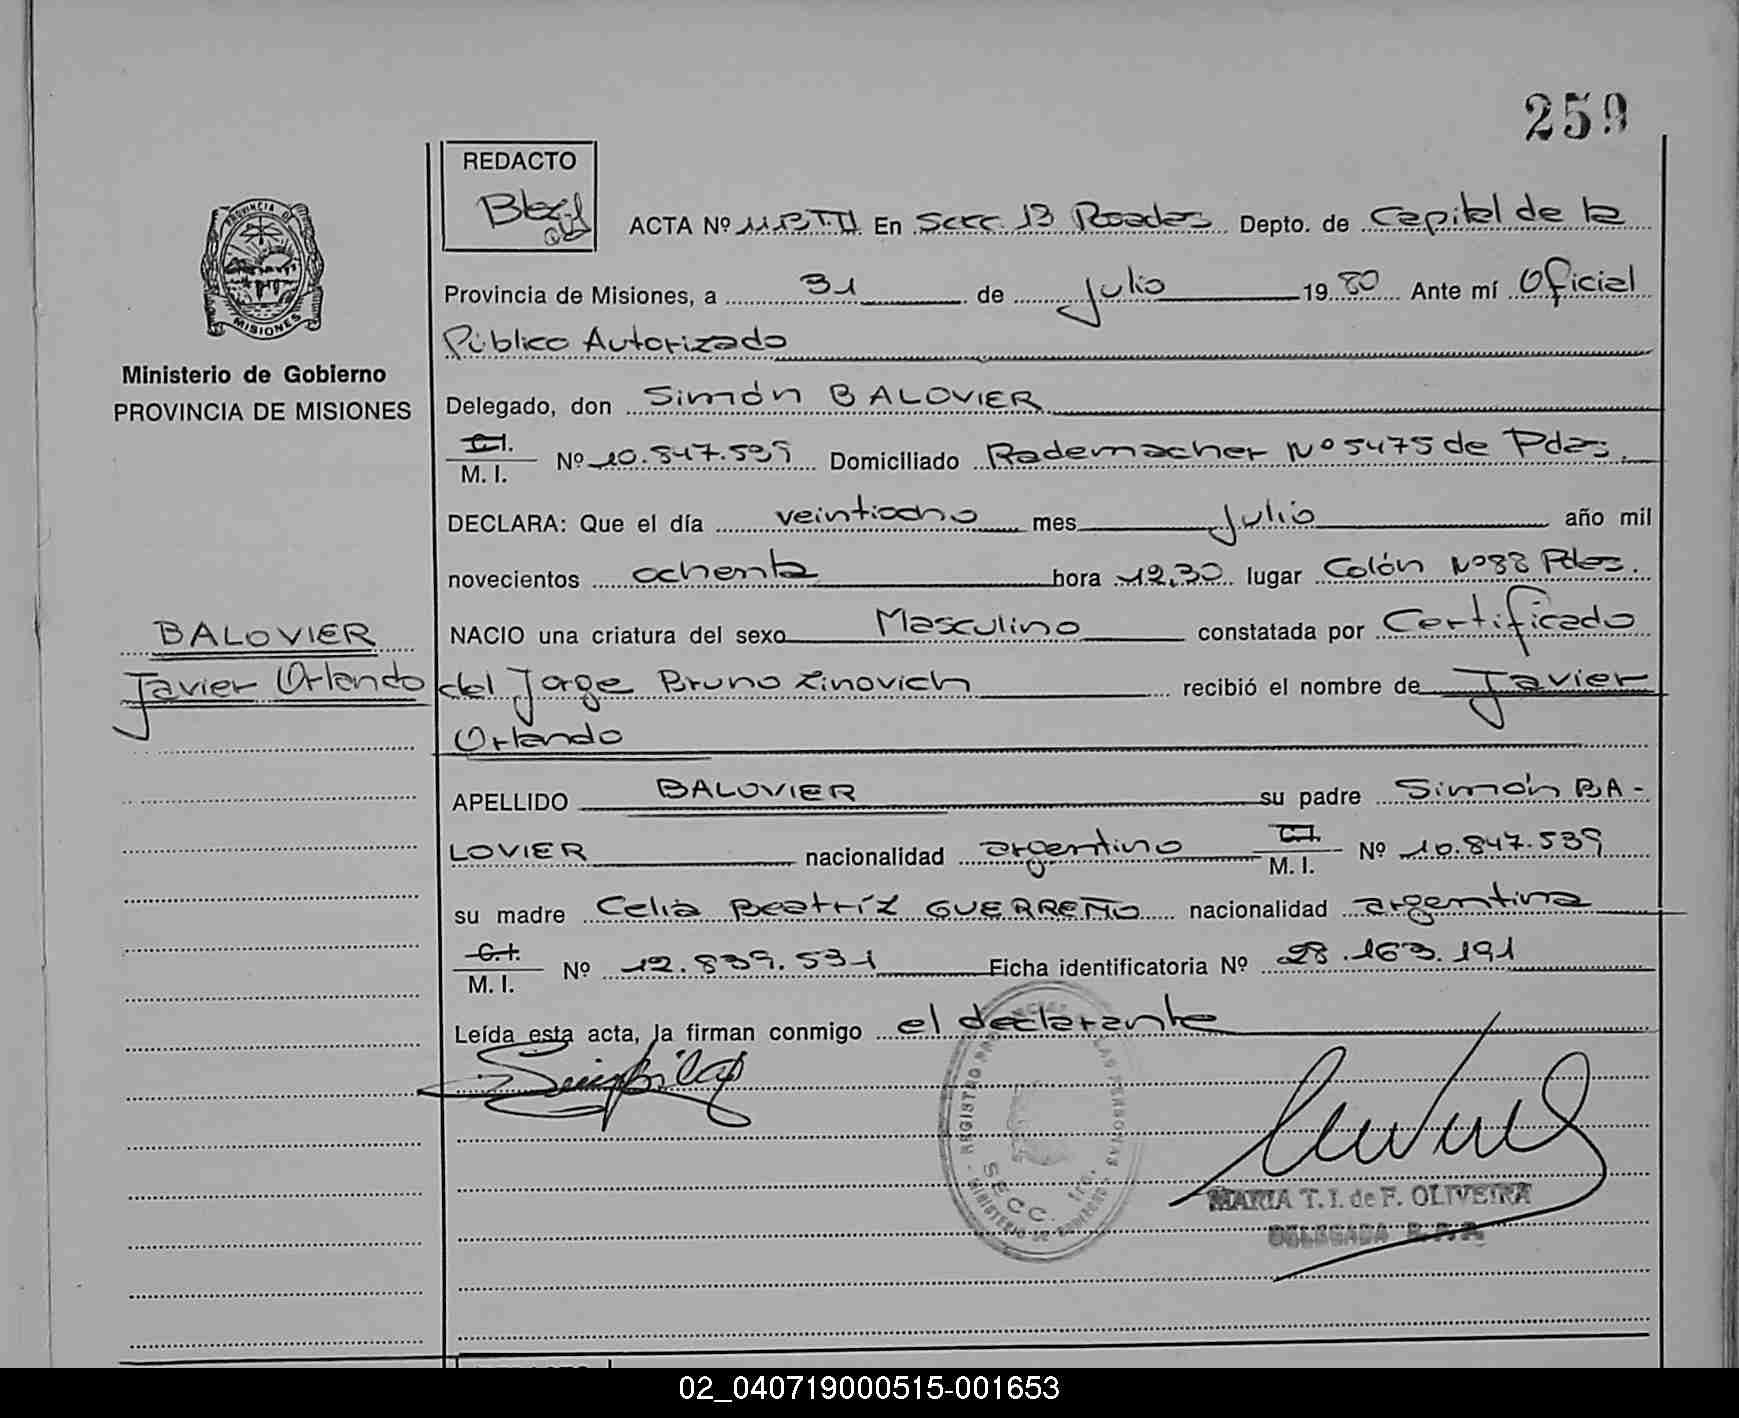 259
REDACTO
PROVINCIA DE
MISIONES
ACTA Nº 113 T.II En Secc. 13 Posadas Depto. de Capital de la
Provincia de Misiones, a 31 de Julio 1980 Ante mí Oficial
Público Autorizado
Ministerio de Gobierno
PROVINCIA DE MISIONES
Delegado, don Simón BALOVIER
C.I.
M. I. Nº 10.847.539 Domiciliado Rademacher Nº 5475 de Pdas.
DECLARA: Que el día veintiocho mes Julio año mil
novecientos ochenta hora 12,30 lugar Colón Nº 88 Pdas.
BALOVIER
Javier Orlando
NACIO una criatura del sexo Masculino constatada por Certificado
del Jorge Bruno Zinovich recibió el nombre de Javier
Orlando
APELLIDO BALOVIER su padre Simón BA-
LOVIER nacionalidad argentino C.I. M. I. Nº 10.847.539
su madre Celia Beatríz GUERREÑO nacionalidad argentina
C.I.
M. I. Nº 12.839.531 Ficha identificatoria Nº 28.163.191
Leída esta acta, la firman conmigo el declarante
REGISTRO LAS PERSONAS
SECC.
MINISTERIO DE GOBIERNO
MARIA T. I. de F. OLIVEIRA
DELEGADA R. P. P.
02_040719000515-001653